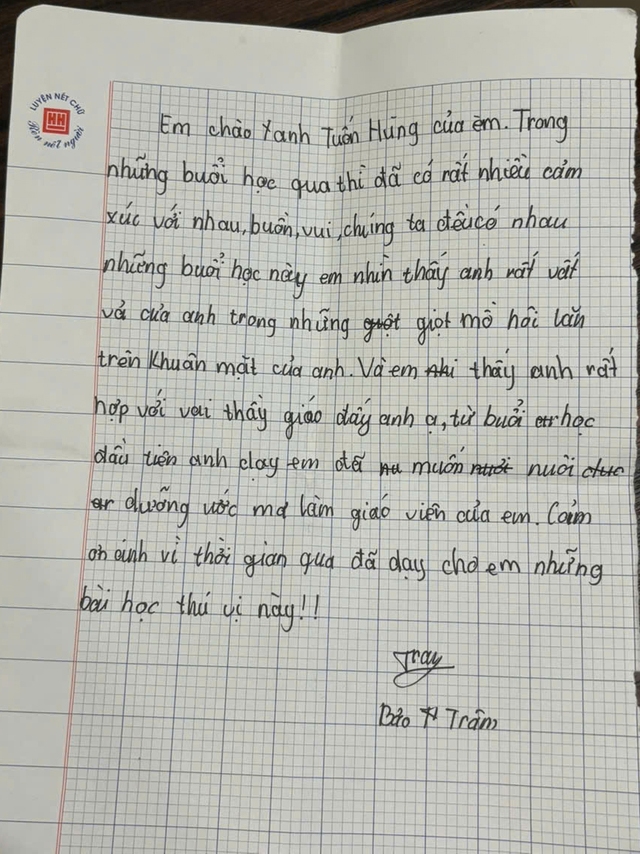 LUYỆN NÉT CHỮ
HH
Rèn nết người
Em chào Yanh Tuấn Hùng của em. Trong
những buổi học qua thì đã có rất nhiều cảm
xúc với nhau, buồn, vui, chúng ta đều có nhau
những buổi học này em nhìn thấy anh rất vất
vả của anh trong những giọt mồ hôi lăn
trên khuân mặt của anh. Và em thấy anh rất
hợp với vai thầy giáo đấy anh ạ, từ buổi học
đầu tiên anh dạy em để muốn nuôi
dưỡng ước mơ làm giáo viên của em. Cảm
ơn anh vì thời gian qua đã dạy cho em những
bài học thú vị này!!
Bảo Trâm